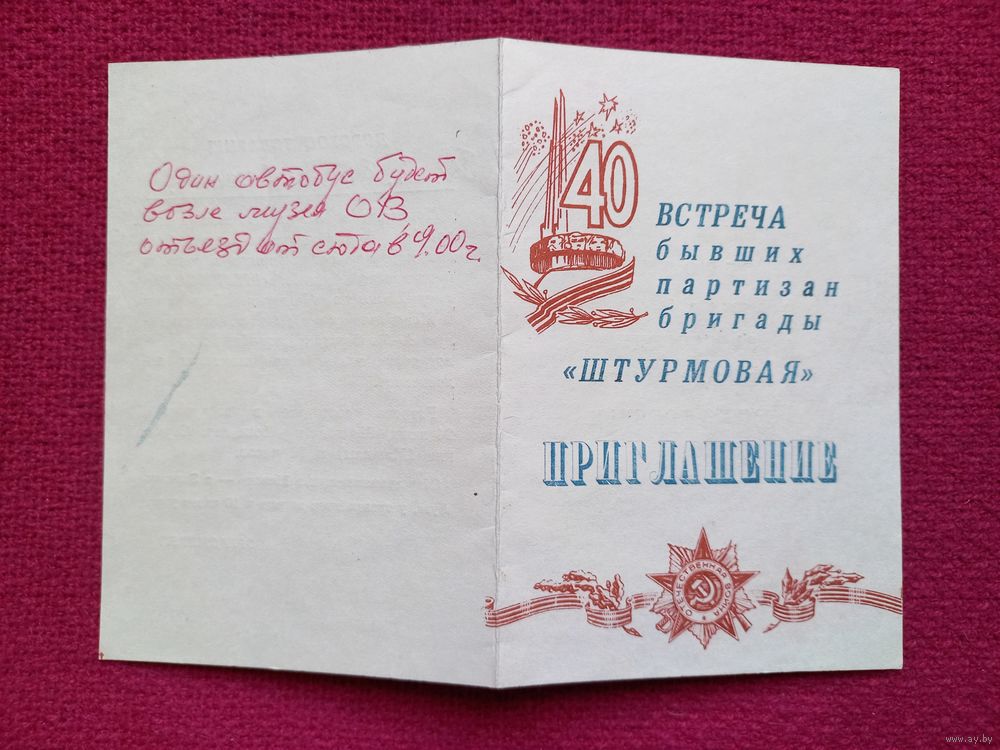 Один автобус будет
возле музея ОВ
отъезд от сюда в 9.00 г.
40
ВСТРЕЧА
бывших
партизан
бригады
«ШТУРМОВАЯ»
ПРИГЛАШЕНИЕ
ОТЕЧЕСТВЕННАЯ ВОЙНА
www.ay.by